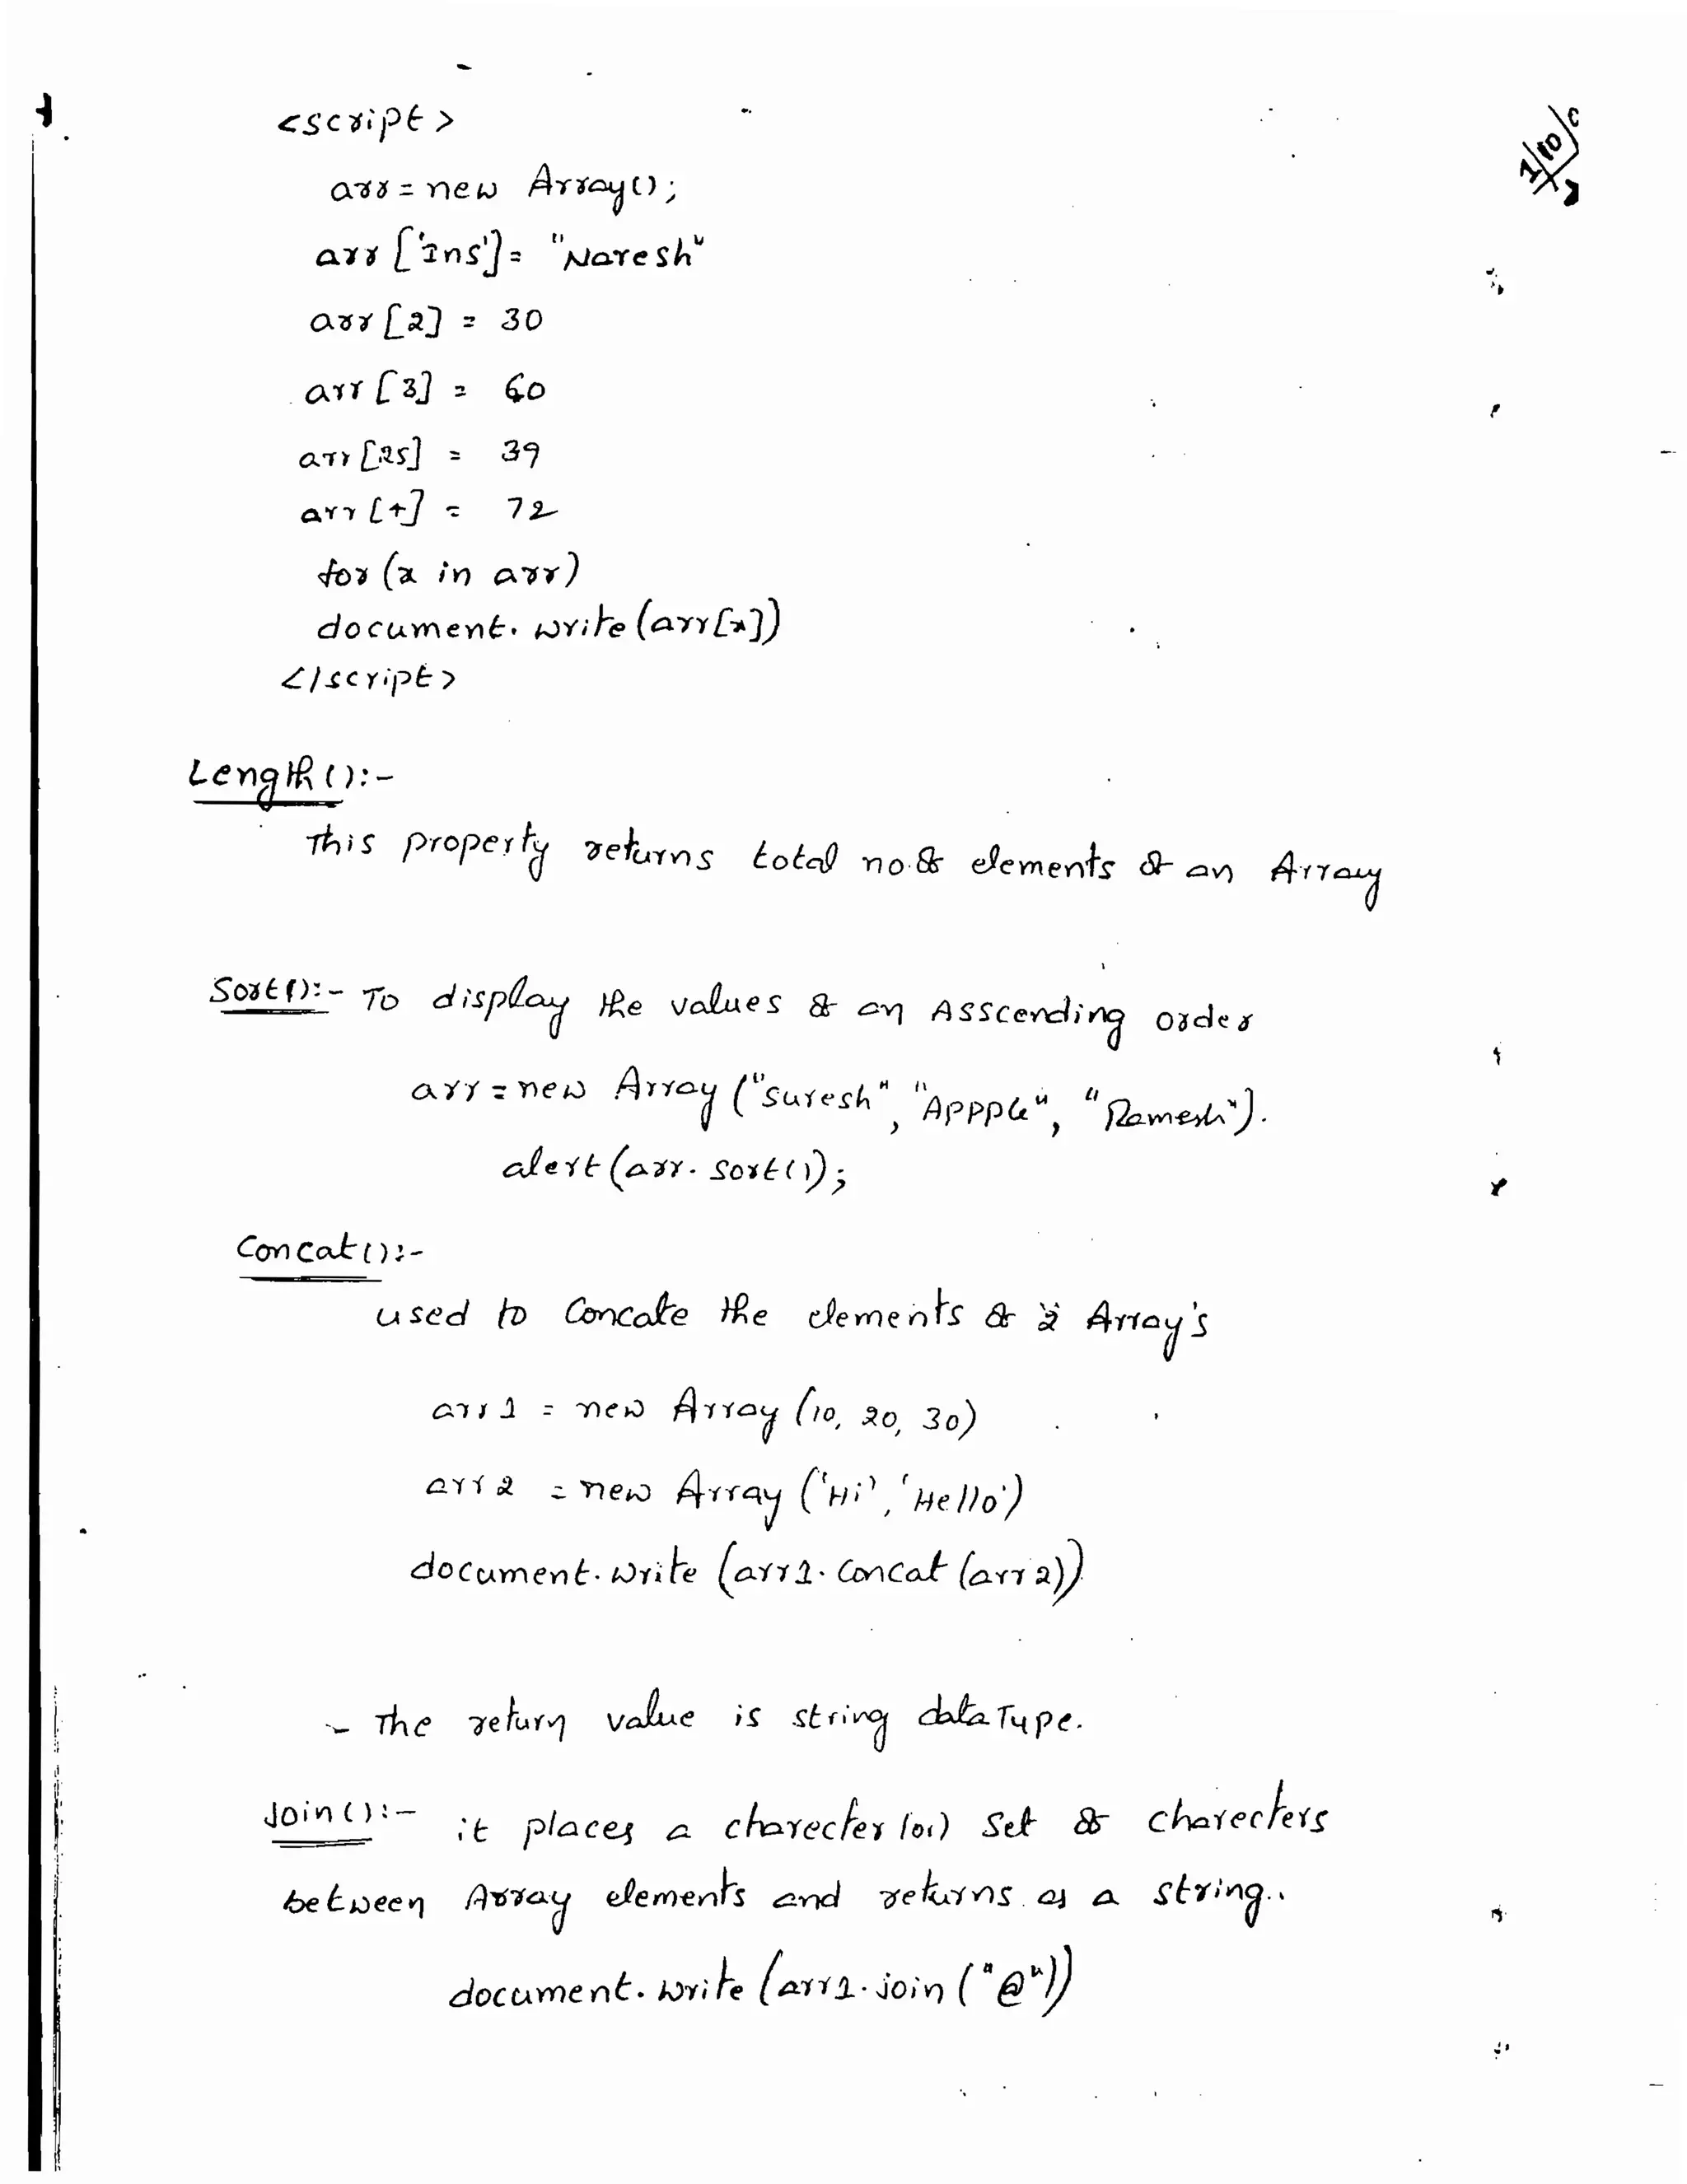 <script>
arr = new Array();
arr ['Ins'] = "Naresh"
arr [2] = 30
arr [3] = 60
arr [25] = 39
arr [+] = 72
for (x in arr)
document. write (arr[x])
</script>
Length ():-
This property returns total no.of elements of an Array
Sort():- To display the values of an Asscending order
arr = new Array ("Suresh", "Appple", "Ramesh").
alert (arr. sort());
Concat():-
used to Concate the elements of 2 Array's
arr 1 = new Array (10, 20, 30)
arr 2 = new Array ('Hi', 'Hello')
document. write (arr1. Concat (arr2))
- The return value is string dataType.
Join():- it places a charecter (or) Set of charecters
between Array elements and returns as a string..
document. write (arr1. join ("@"))